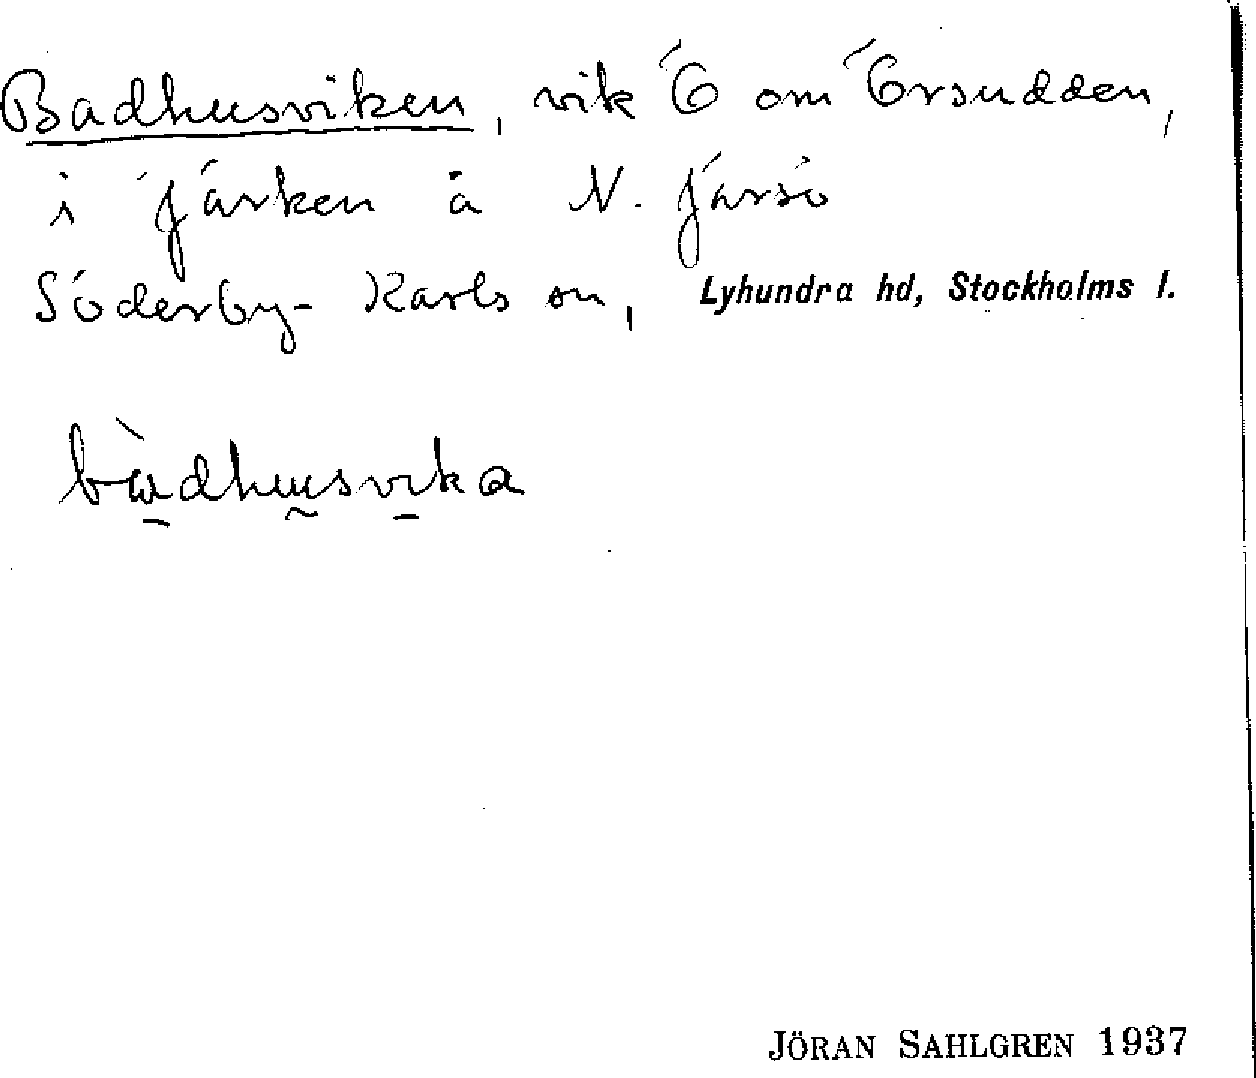 Badhusviken, vik Ö om Örsudden,
i Järken å N. Järsö
Söderby-Karls sn, Lyhundra hd, Stockholms l.
bàdhusvika
JÖRAN SAHLGREN 1937